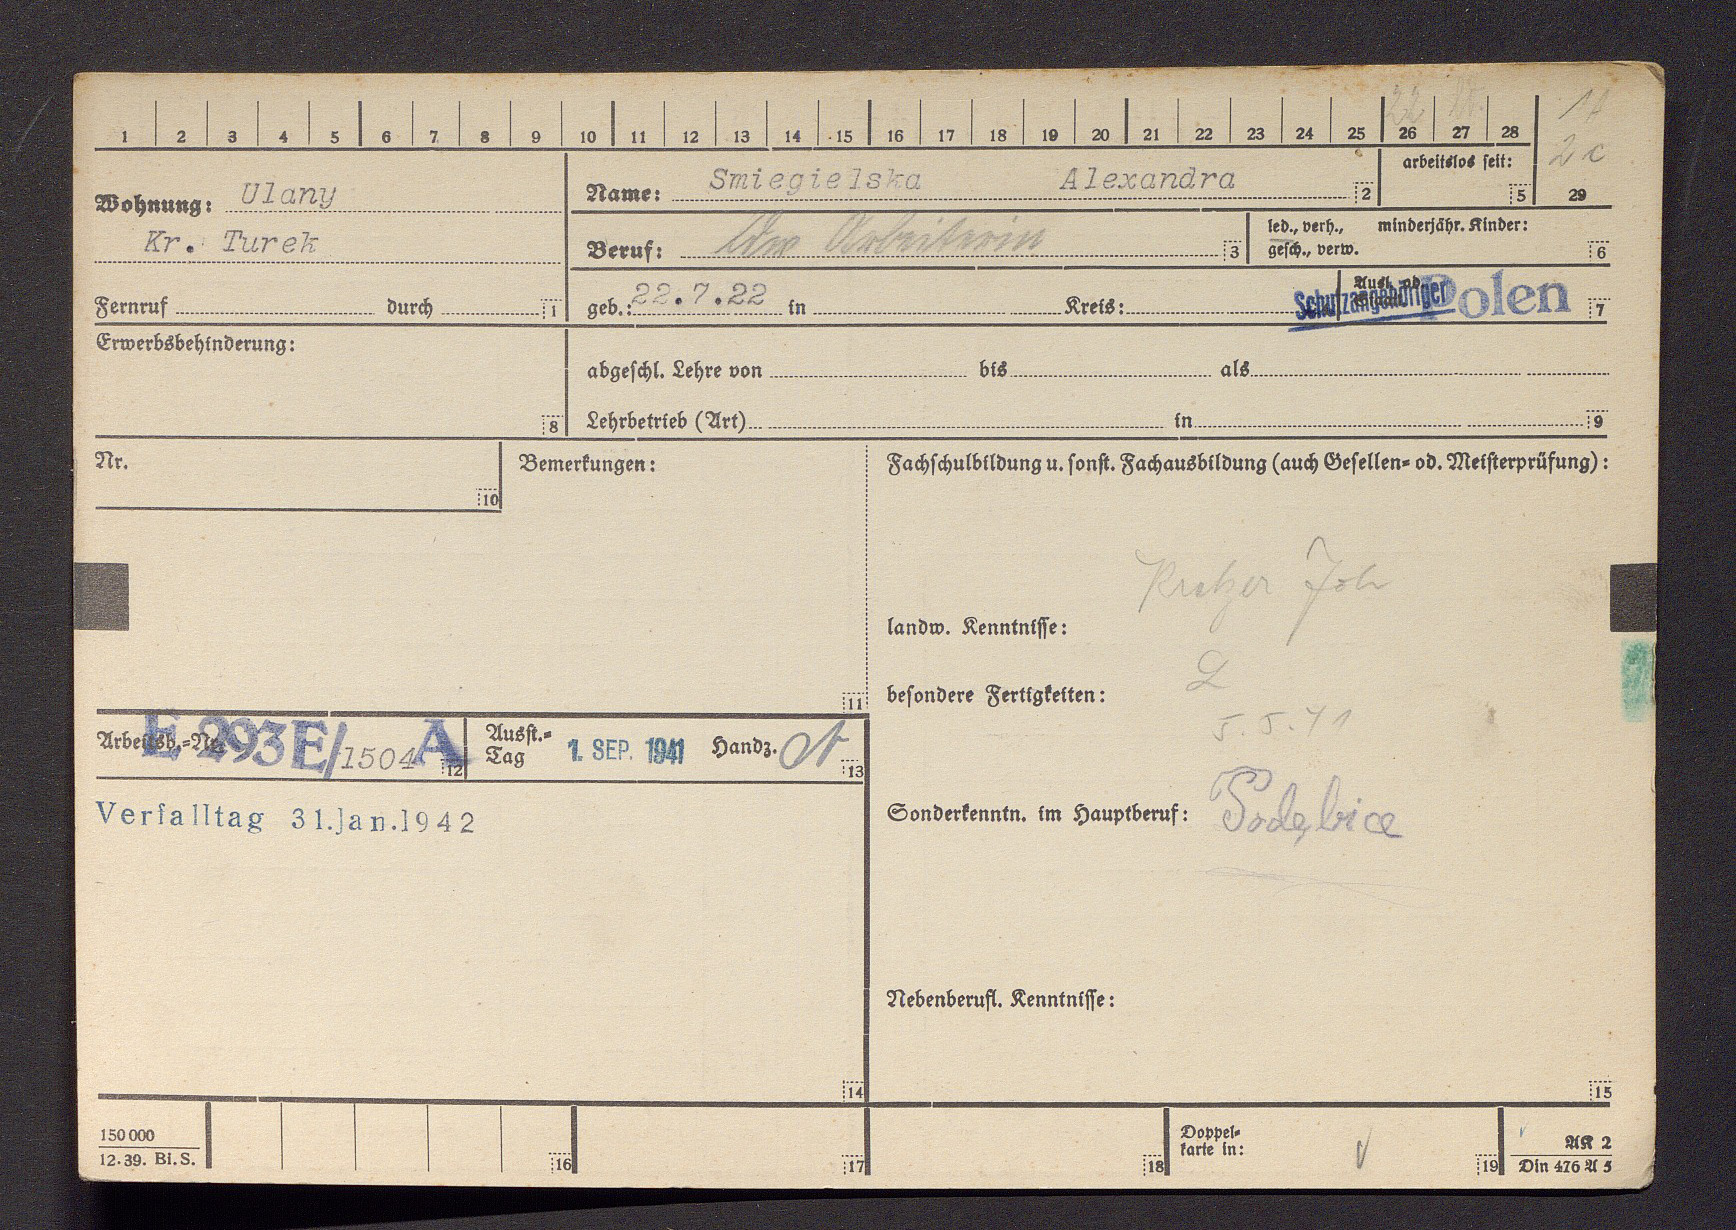 1 2 3 4 5 6 7 8 9 10 11 12 13 14 15 16 17 18 19 20 21 22 23 24 25 26 27 28 29
22
2c
arbeitslos seit: 5
Wohnung: Ulany
Kr. Turek
Fernruf durch 1
Name: Smiegielska Alexandra 2
Beruf: Arbeiterin 3
led., verh., minderjähr. Kinder:
gesch., verw. 6
geb.: 22.7.22 in Kreis: Schutzangehöriger Polen 7
Erwerbsbehinderung: 8
abgeschl. Lehre von bis als
Lehrbetrieb (Art) in 9
Nr. 10
Bemerkungen: 11
Fachschulbildung u. sonst. Fachausbildung (auch Gesellen- od. Meisterprüfung):
landw. Kenntnisse:
besondere Fertigkeiten:
5.5.41
Sonderkenntn. im Hauptberuf: Podębice
Nebenberufl. Kenntnisse:
15
Arbeitsb.-Nr. E 293E/1504 A 12
Ausst.-
Tag 1. SEP. 1941 Handz. 13
Verfalltag 31.Jan.1942
14
150 000
12.39. Bi.S.
16 17 18
Doppel-
karte in: 19
AK 2
Din 476 A 5